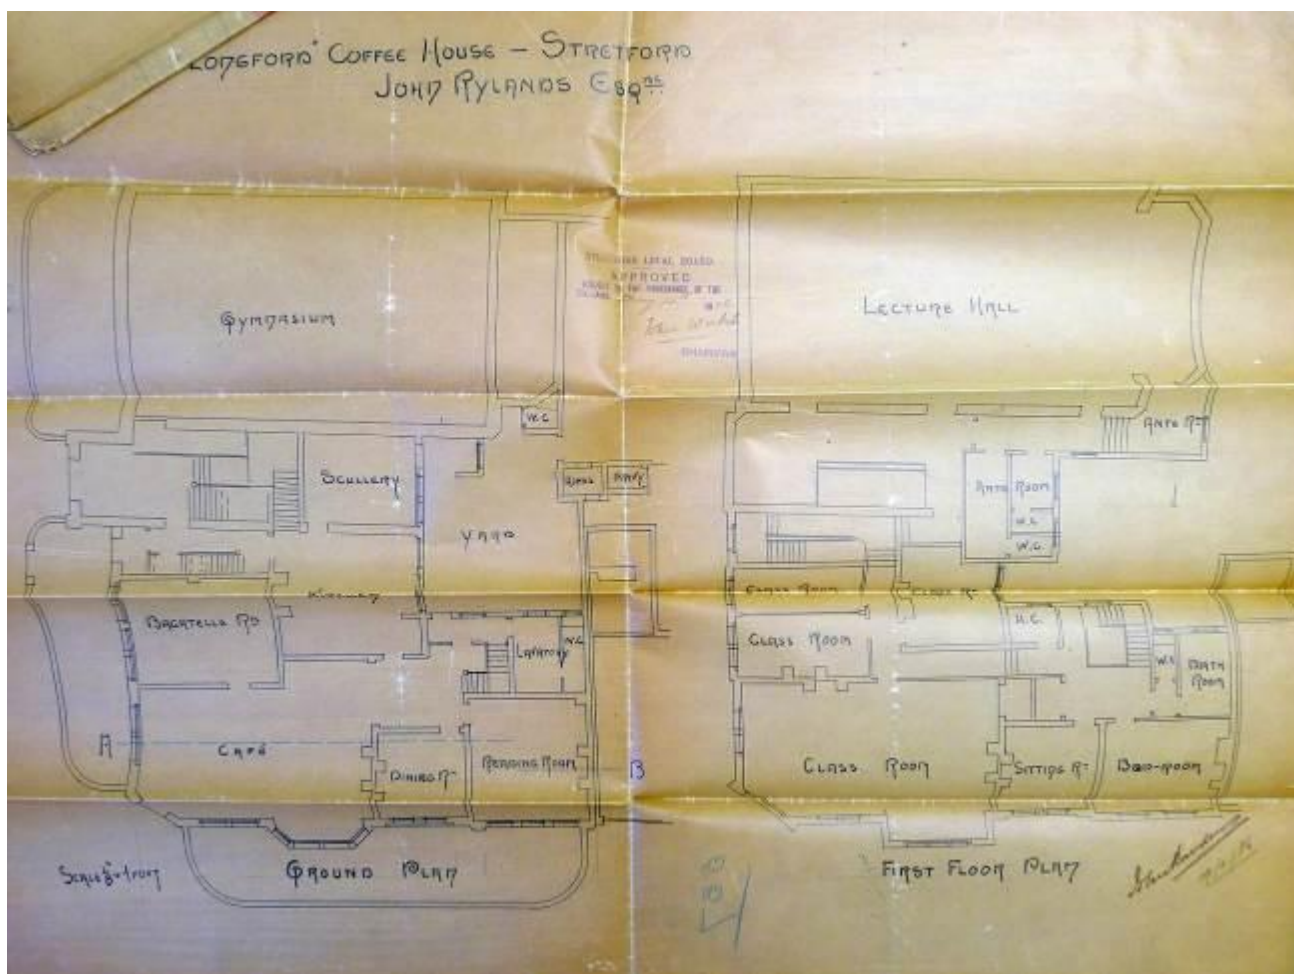 "LONGFORD" COFFEE HOUSE — STRETFORD
JOHN RYLANDS ESQRE.
GYMNASIUM
W.C.
SCULLERY
YARD
KITCHEN
BAGATELLE RM
LAVATORY
W.C.
A
CAFÉ
DINING RM
READING ROOM
B
SCALE
GROUND PLAN
LOCAL BOARD
APPROVED
LECTURE HALL
ANTE RM
ANTE ROOM
W.C.
W.C.
CLASS ROOM
CLASS RM
CLASS ROOM
W.C.
BATH
ROOM
CLASS ROOM
SITTING RM
BED-ROOM
FIRST FLOOR PLAN